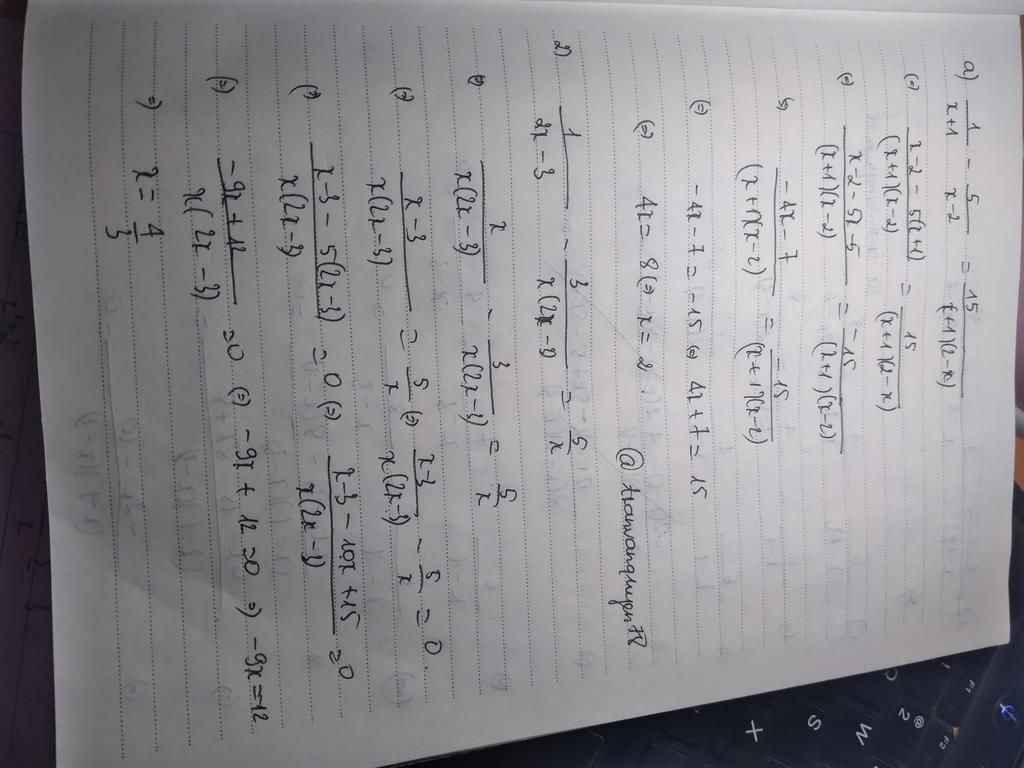 a) 1/(x+1) - 5/(x-2) = 15/((x+1)(2-x))
(=) (x-2 - 5(x+1))/((x+1)(x-2)) = 15/((x+1)(2-x))
(=) (x-2-5x-5)/((x+1)(x-2)) = -15/((x+1)(x-2))
(=) (-4x-7)/((x+1)(x-2)) = -15/((x+1)(x-2))
(=) -4x-7 = -15 (=) 4x+7 = 15
(=) 4x = 8 (=) x = 2.
@ transvannguyen
2) 1/(2x-3) - 3/(x(2x-3)) = 5/x
(=) x/(x(2x-3)) - 3/(x(2x-3)) = 5/x
(=) (x-3)/(x(2x-3)) = 5/x (=) (x-3)/(x(2x-3)) - 5/x = 0.
(=) (x-3 - 5(2x-3))/(x(2x-3)) = 0 (=) (x-3-10x+15)/(x(2x-3)) = 0
(=) (-9x+12)/(x(2x-3)) = 0 (=) -9x + 12 = 0 => -9x = 12.
=) x = 4/3
W
S
X
@ 2
F1
F2